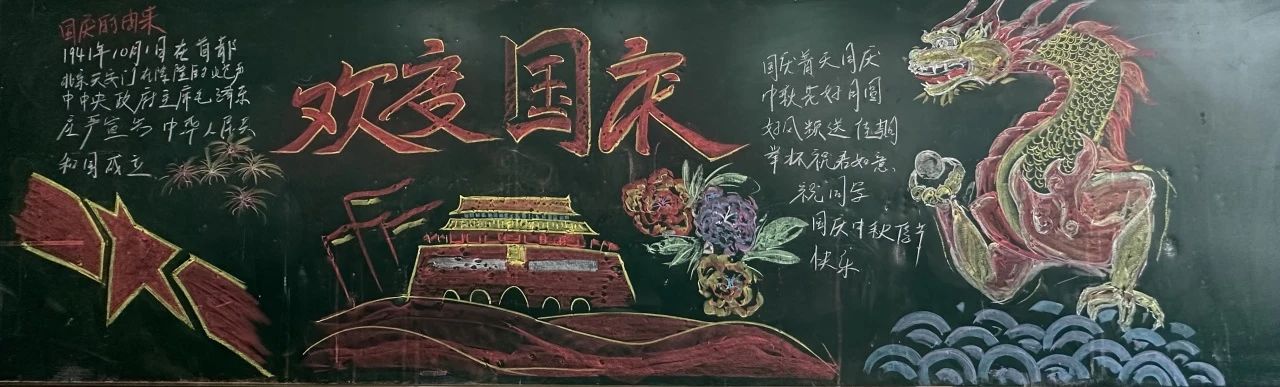 国庆的由来
1941年10月1日在首都
北京天安门在隆隆的炮声
中中央政府主席毛泽东
庄严宣告 中华人民共
和国成立、
欢度国庆
国庆普天同庆
中秋花好月圆
好风频送佳期
举杯祝君如意、
祝同学
国庆中秋佳节
快乐